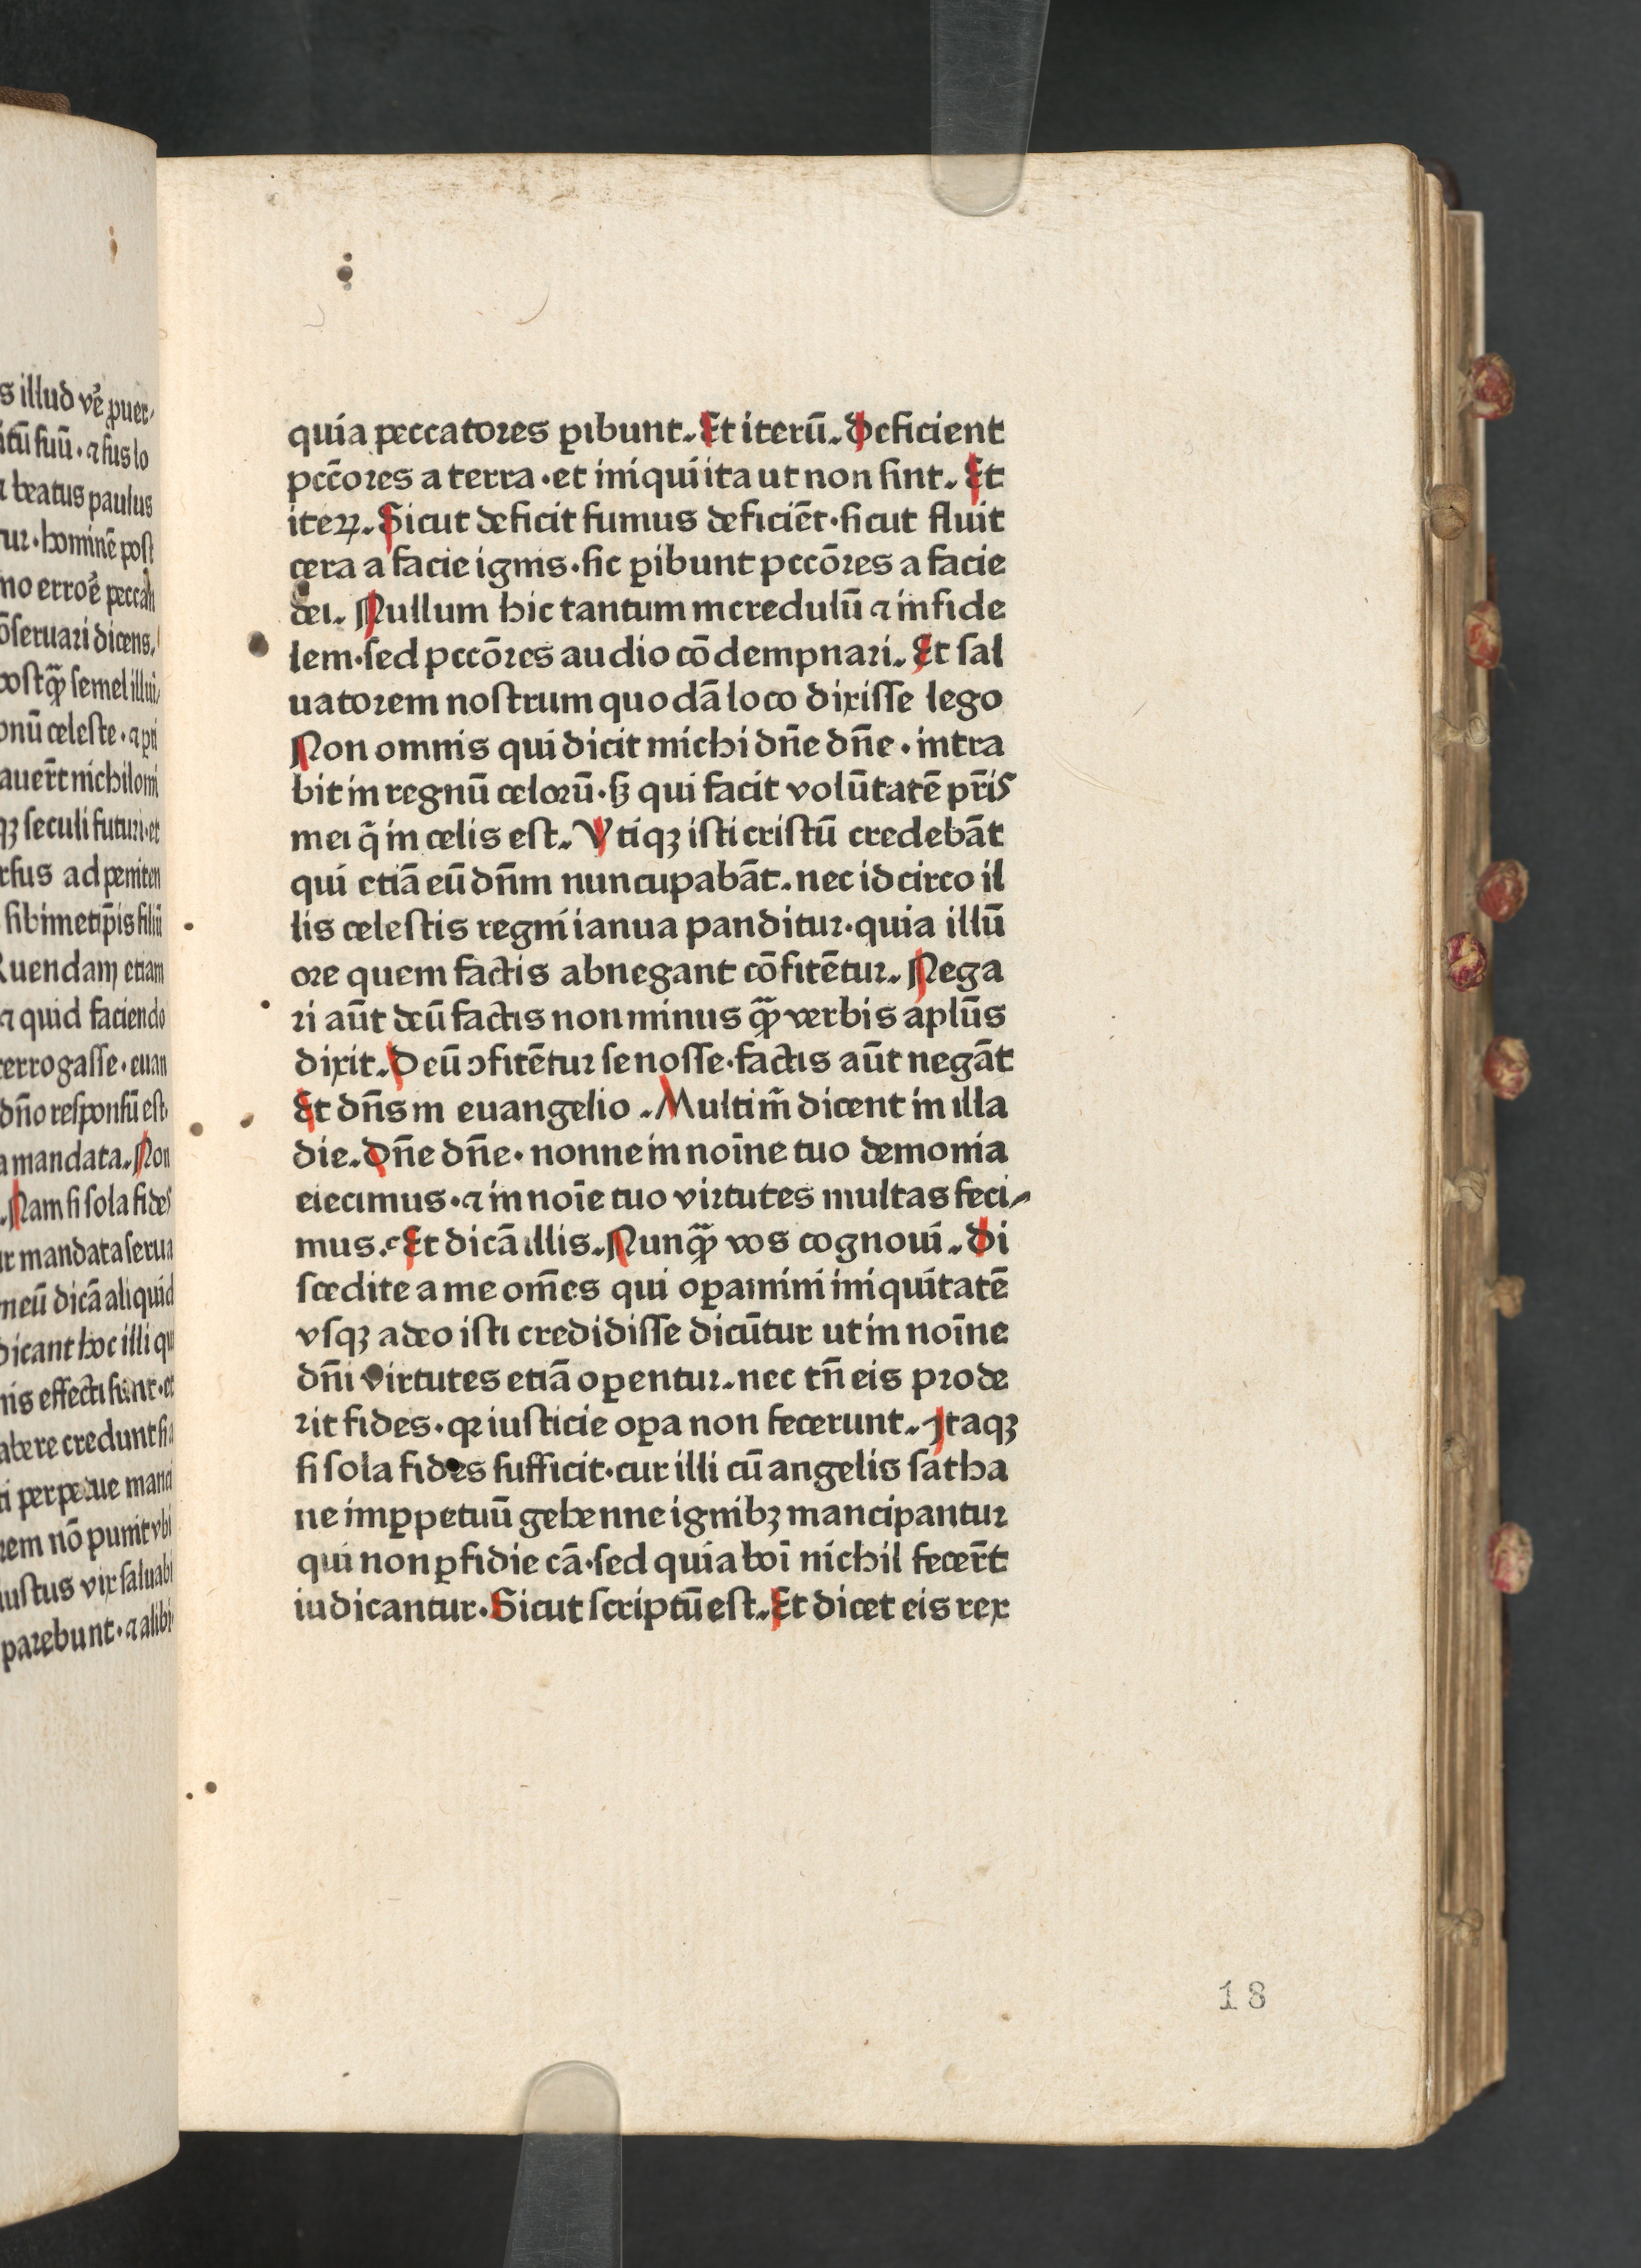 s illud vē̄ ꝓuer-
itū suū · ⁊ fus lo
beatus paulus
tur · hominē post
mo erroē peccan
ōseruari dicens.
postꝙ̄ semel illui-
onū celeste · ⁊ pri
auert̄ nichilomi
qꝫ seculi futuri · et
rsus ad peniten
sibimetip̄is filiū
Ruendam etiam
⁊ quid faciendo
terrogasse · euan
dn̄o responsū est.
a mandata. Non
. Nam si sola fides
ur mandata serua
meū dicā aliquid
dicant hoc illi qui
nis effecti sunt · et
abere credunt
ti perpetue manci
rem nō punit vbi
iustus vix saluabi
parebunt · ⁊ alibi
quia peccatores ꝑibunt. Et iterū. Deficient
pcc̄ores a terra · et iniqui ita ut non sint. Et
iteꝝ. Sicut deficit fumus deficiēt · sicut fluit
cera a facie ignis · sic ꝑibunt pccōres a facie
dei. Nullum hic tantum incredulū ⁊ infide
lem · sed pccōres audio cōdempnari. Et sal
uatorem nostrum quodā loco dixisse lego
Non omnis qui dicit michi dn̄e dn̄e · intra
bit in regnū celorū · sꝫ qui facit volūtatē pr̄is
mei q̄ in celis est. Vtiqꝫ isti cristū credebāt
qui etiā eū dn̄m nuncupabāt. nec idcirco il
lis celestis regni ianua panditur · quia illū
ore quem factis abnegant cōfitētur. Nega
ri aūt deū factis non minus ꝙ̄ verbis aplūs
dixit. Deū ꝯfitētur se nosse · factis aūt negāt
Et dn̄s in euangelio. Multi m̄ dicent in illa
die. Dn̄e dn̄e · nonne in noīne tuo demonia
eiecimus · ⁊ in noīe tuo virtutes multas feci-
mus. Et dicā illis. Nunꝙ̄ vos cognoui. Di
scedite a me om̄es qui oꝑamini iniquitatē
vsqꝫ adeo isti credidisse dicūtur ut in noīne
dn̄i virtutes etiā oꝑentur. nec tn̄ eis prode
rit fides · qꝛ iusticie oꝑa non fecerunt. Itaqꝫ
si sola fides sufficit · cur illi cū angelis satha
ne imꝑpetuū gehenne ignibꝫ mancipantur
qui non ꝑfidie cā · sed quia boī nichil fecer̄t
iudicantur · Sicut scriptū est. Et dicet eis rex
18